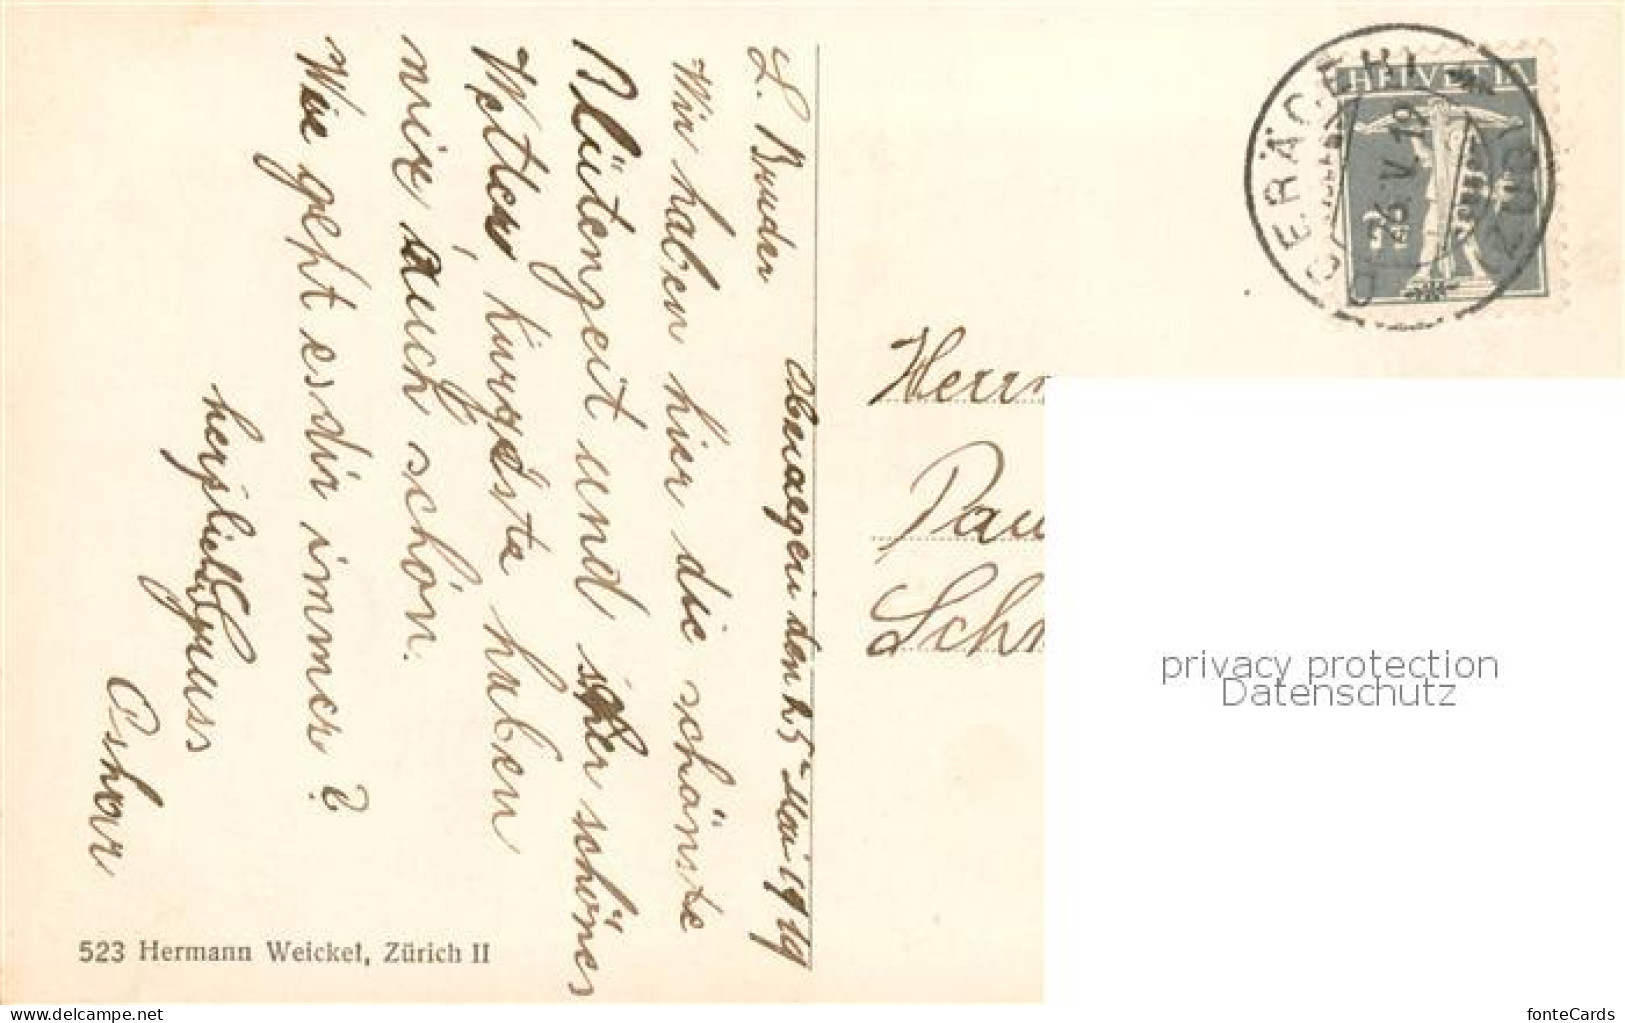 Oberaegeri den 25 Mai 1919
L. Bruder
Wir haben hier die schönste
Blütenzeit und sehr schönes
Wetter kürzeste haben
wir auch schon.
Wie geht es dir immer?
herzlich Gruss
Oskar
523 Hermann Weickel, Zürich II
HELVETIA
26. V. 19
Herrn
Pau
Sch
privacy protection
Datenschutz
www.delcampe.net
fonteCards